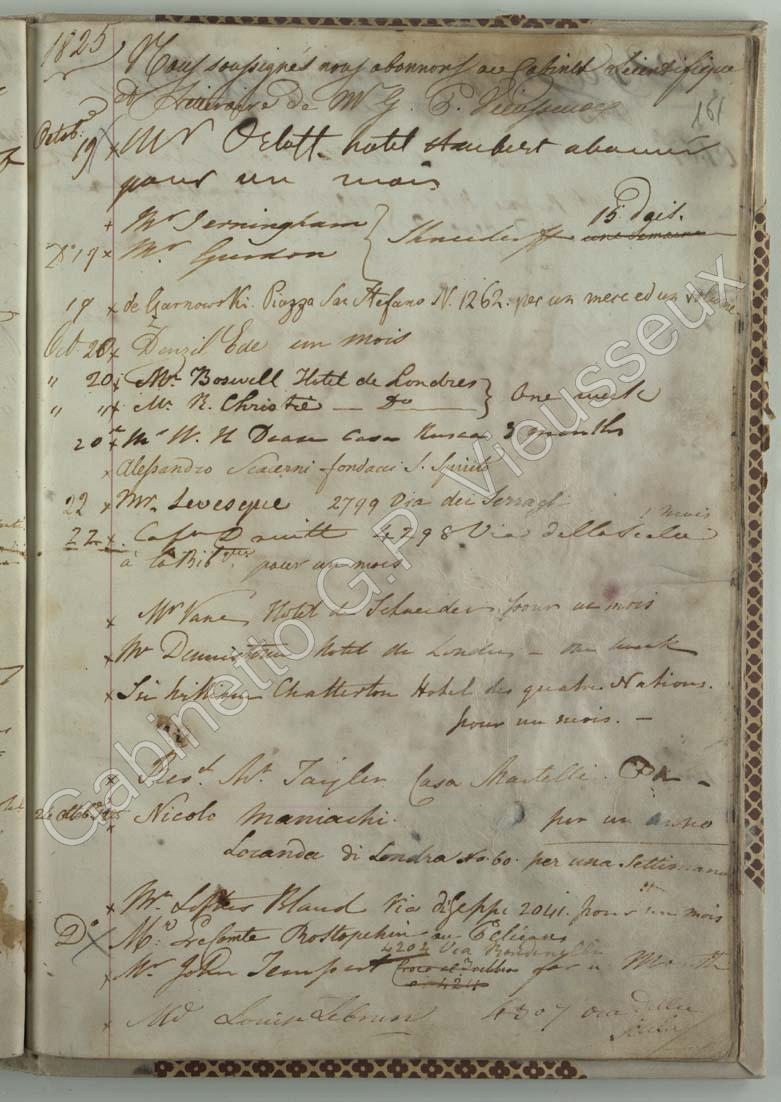 1825
Nous soussignés nous abonnons au Cabinet Scientifique
et Litteraire de Mr G. P. Vieusseux
161
Octob.
19 x Mr Orloff hotel abonné
pour un mois
+ Mr Jerningham
15 Dais.
Do 19 x Mr Gurdon } Shneiderff une semaine
19 x de Garnowski. Piazza San Stefano N. 1262. per un mese ed un volume
Oct. 20 x Denzil Ede un mois
" 20 x Mr Boswell Hotel de Londres } One week
" " x Mr R. Christie — Do
20 x Mr W. H. Casa 3 months
x Alessandro fondacci S. Spirito
22 x Mr Levesque 2799 Via dei Serragl
1 mois
22 x Capn 4298 Via della Scala
à la Bib pour un mois
x Mr Vane Hotel de Schneider pour un mois
x Mr Hotel de Londres — one week
x Sir William Chatterton Hotel des quatre Nations.
pour un mois. —
x Revd Mr Casa Martelli.
x Nicolo Maniachi. per un anno
Locanda di Londra No. 60. per una settimana
x Mr Loftus Bland Via 2041. pour un mois
Do x Mr Le Comte Rostopchin au Pelicano
4202 Via
x Mr John Tempest for a Month
424
x Md Louise Lebrun 4307 via della
Scala
Gabinetto G.P. Vieusseux